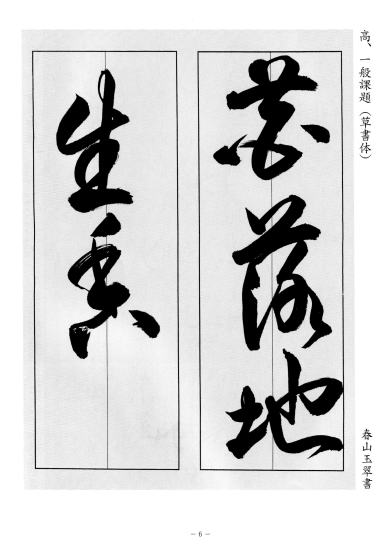 高、一般課題（草書体）
春山玉翠書
花落地
生香
－6－